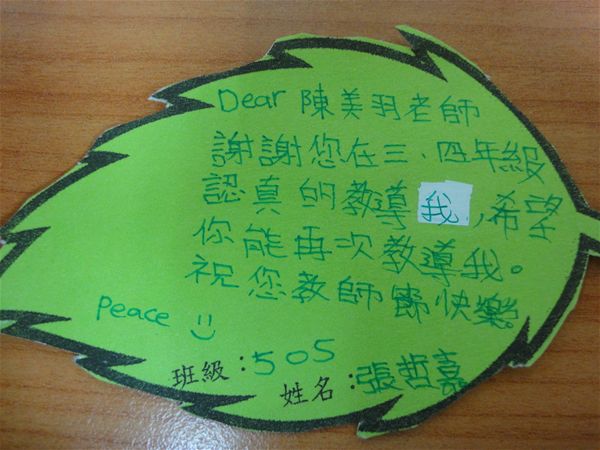 Dear 陳美羽老師
謝謝您在三、四年級
認真的教導我,希望
你能再次教導我。
祝您教師節快樂。
Peace
班級:505
姓名:張哲嘉